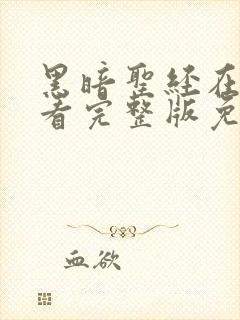 黑暗聖経在
看完整版免
血欲